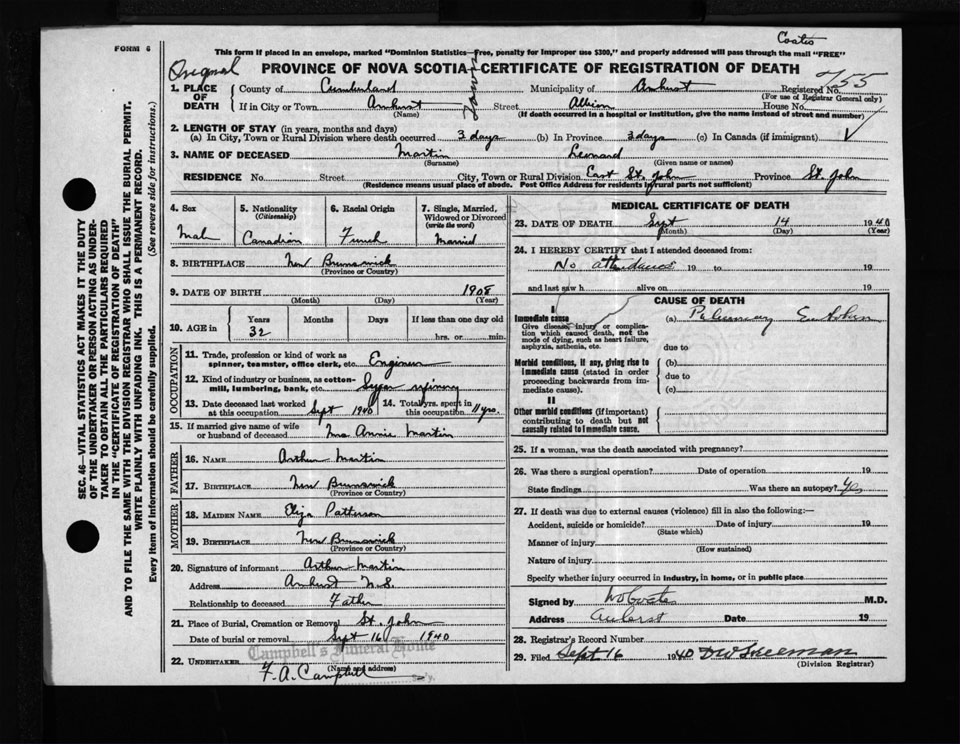 Coates
FORM 6
This form if placed in an envelope, marked "Dominion Statistics—Free, penalty for improper use $300," and properly addressed will pass through the mail "FREE"
Original
PROVINCE OF NOVA SCOTIA—CERTIFICATE OF REGISTRATION OF DEATH
755
1. PLACE OF DEATH
County of Cumberland Municipality of Amherst Registered No.
(For use of Registrar General only)
If in City or Town Amherst Street Albion House No.
(Name) (If death occurred in a hospital or institution, give the name instead of street and number)
2. LENGTH OF STAY (in years, months and days)
(a) In City, Town or Rural Division where death occurred 3 days (b) In Province 3 days (c) In Canada (if immigrant)
3. NAME OF DECEASED Martin Leonard
(Surname) (Given name or names)
RESIDENCE No. Street City, Town or Rural Division East St. John Province St. John
(Residence means usual place of abode. Post Office Address for residents in rural parts not sufficient)
4. Sex 5. Nationality (Citizenship) 6. Racial Origin 7. Single, Married, Widowed or Divorced (write the word)
Mal Canadian French Married
8. BIRTHPLACE New Brunswick
(Province or Country)
9. DATE OF BIRTH 1908
(Month) (Day) (Year)
10. AGE in Years Months Days If less than one day old
32 hrs. or min.
OCCUPATION
11. Trade, profession or kind of work as spinner, teamster, office clerk, etc. Engineer
12. Kind of industry or business, as cotton-mill, lumbering, bank, etc. Sugar refinery
13. Date deceased last worked at this occupation Sept 1940 14. Total yrs. spent in this occupation 11 yrs.
15. If married give name of wife or husband of deceased Mrs Annie Martin
FATHER
16. NAME Arthur Martin
17. BIRTHPLACE New Brunswick
(Province or Country)
MOTHER
18. MAIDEN NAME Eliza Patterson
19. BIRTHPLACE New Brunswick
(Province or Country)
20. Signature of informant Arthur Martin
Address Amherst N.S.
Relationship to deceased Father
21. Place of Burial, Cremation or Removal St. John
Date of burial or removal Sept 16 1940
Campbell's Funeral Home
22. UNDERTAKER F. A. Campbell
(Name and address)
MEDICAL CERTIFICATE OF DEATH
23. DATE OF DEATH Sept 14 1940
(Month) (Day) (Year)
24. I HEREBY CERTIFY that I attended deceased from:
No attendance 19 to 19
and last saw h alive on 19
CAUSE OF DEATH
I
Immediate cause
Give disease, injury or complication which caused death, not the mode of dying, such as heart failure, asphyxia, asthenia, etc.
(a) Pulmonary Embolism
due to
Morbid conditions, if any, giving rise to immediate cause (stated in order proceeding backwards from immediate cause).
(b)
due to
(c)
II
Other morbid conditions (if important) contributing to death but not causally related to immediate cause.
25. If a woman, was the death associated with pregnancy?
26. Was there a surgical operation? Date of operation 19
State findings Was there an autopsy? Yes
27. If death was due to external causes (violence) fill in also the following:—
Accident, suicide or homicide? Date of injury 19
(State which)
Manner of injury
(How sustained)
Nature of injury
Specify whether injury occurred in industry, in home, or in public place
Signed by W Coates M.D.
Address Amherst Date 19
28. Registrar's Record Number
29. Filed Sept 16 1940
(Division Registrar)
SEC. 46—VITAL STATISTICS ACT MAKES IT THE DUTY
OF THE UNDERTAKER OR PERSON ACTING AS UNDER-
TAKER TO OBTAIN ALL THE PARTICULARS REQUIRED
IN THE "CERTIFICATE OF REGISTRATION OF DEATH"
AND TO FILE THE SAME WITH THE DIVISION REGISTRAR WHO SHALL ISSUE THE BURIAL PERMIT.
WRITE PLAINLY WITH UNFADING INK. THIS IS A PERMANENT RECORD.
Every item of information should be carefully supplied. (See reverse side for instructions.)